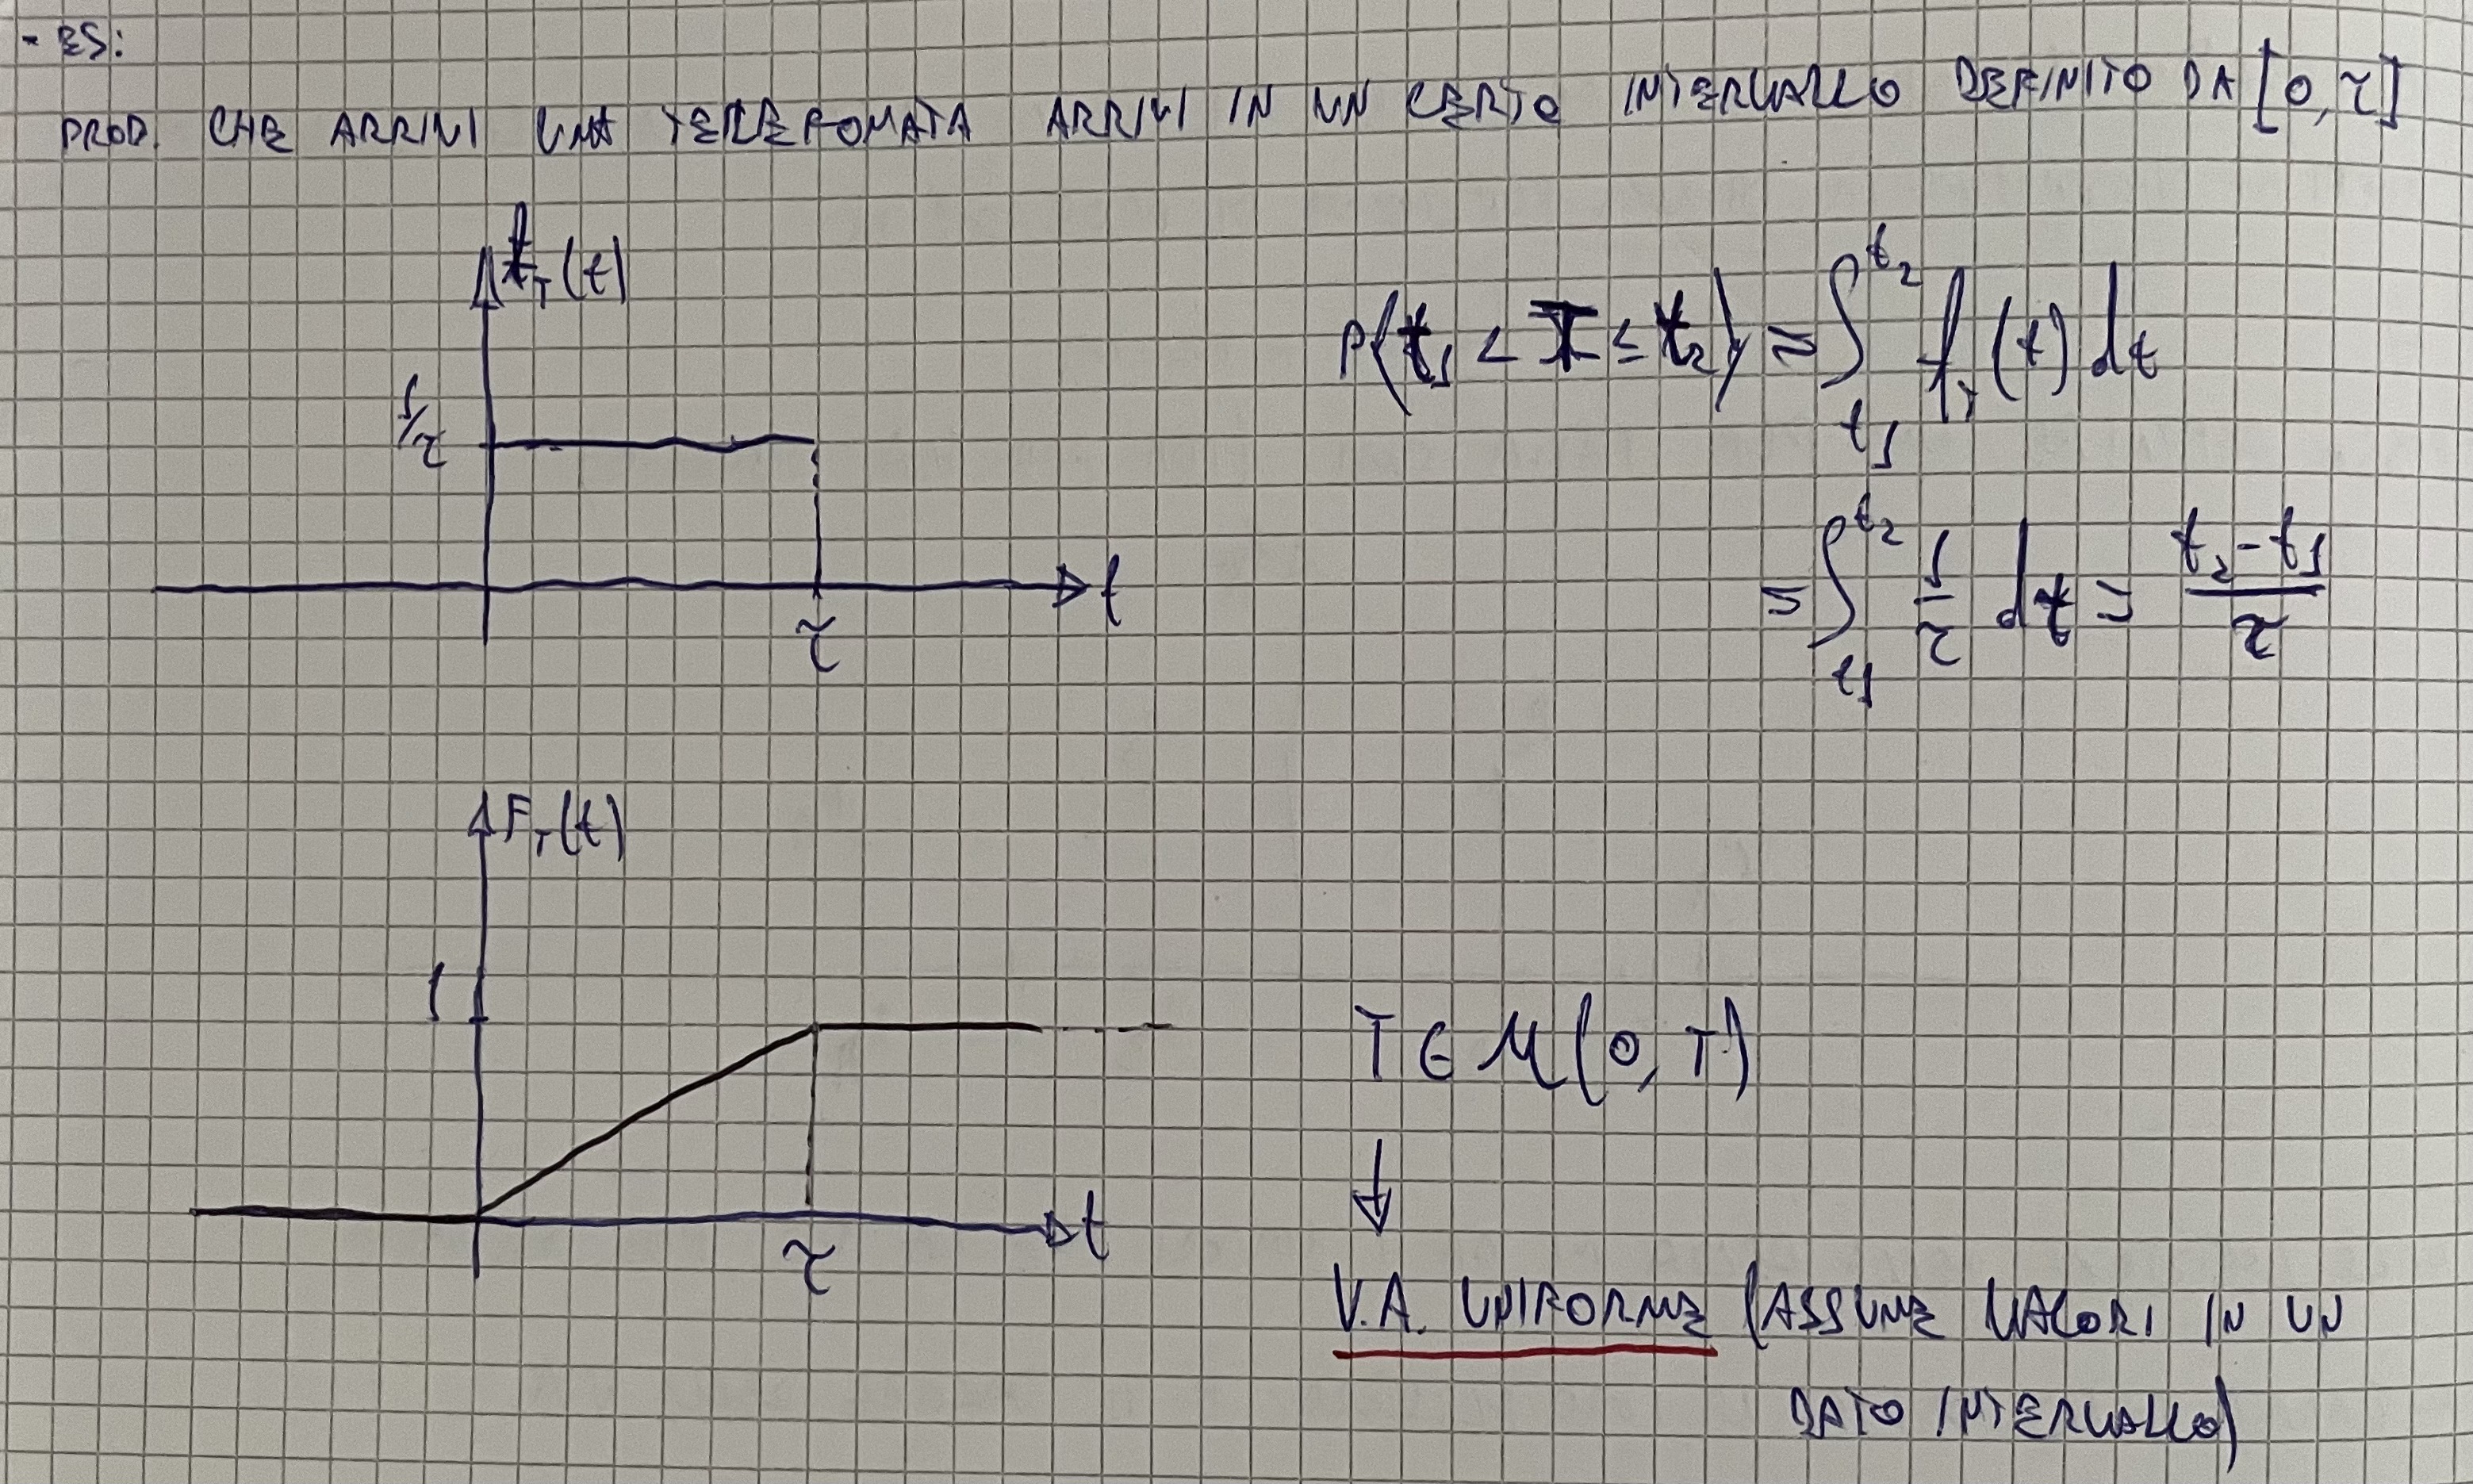 - ES:
PROB. CHE ARRIVI UNA TELEFONATA ARRIVI IN UN CERTO INTERVALLO DEFINITO DA [0, τ]
f_T(t)
1/τ
t
τ
P{t₁ < T ≤ t₂} = ∫_{t₁}^{t₂} f_T(t) dt
= ∫_{t₁}^{t₂} 1/τ dt = (t₂-t₁)/τ
F_T(t)
1
t
τ
T ∈ U(0, T)
↓
V.A. UNIFORME (ASSUME VALORI IN UN
DATO INTERVALLO)